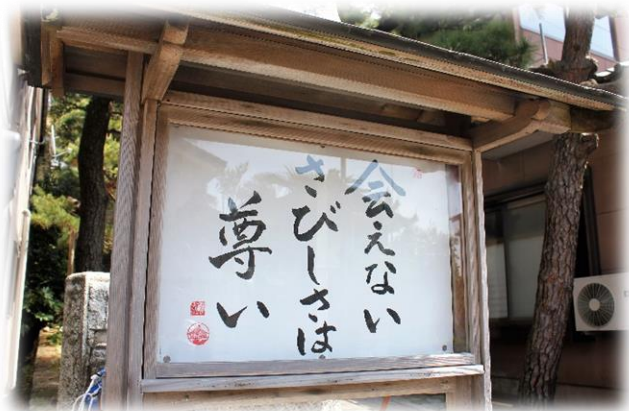 会えない
さびしさは
尊い